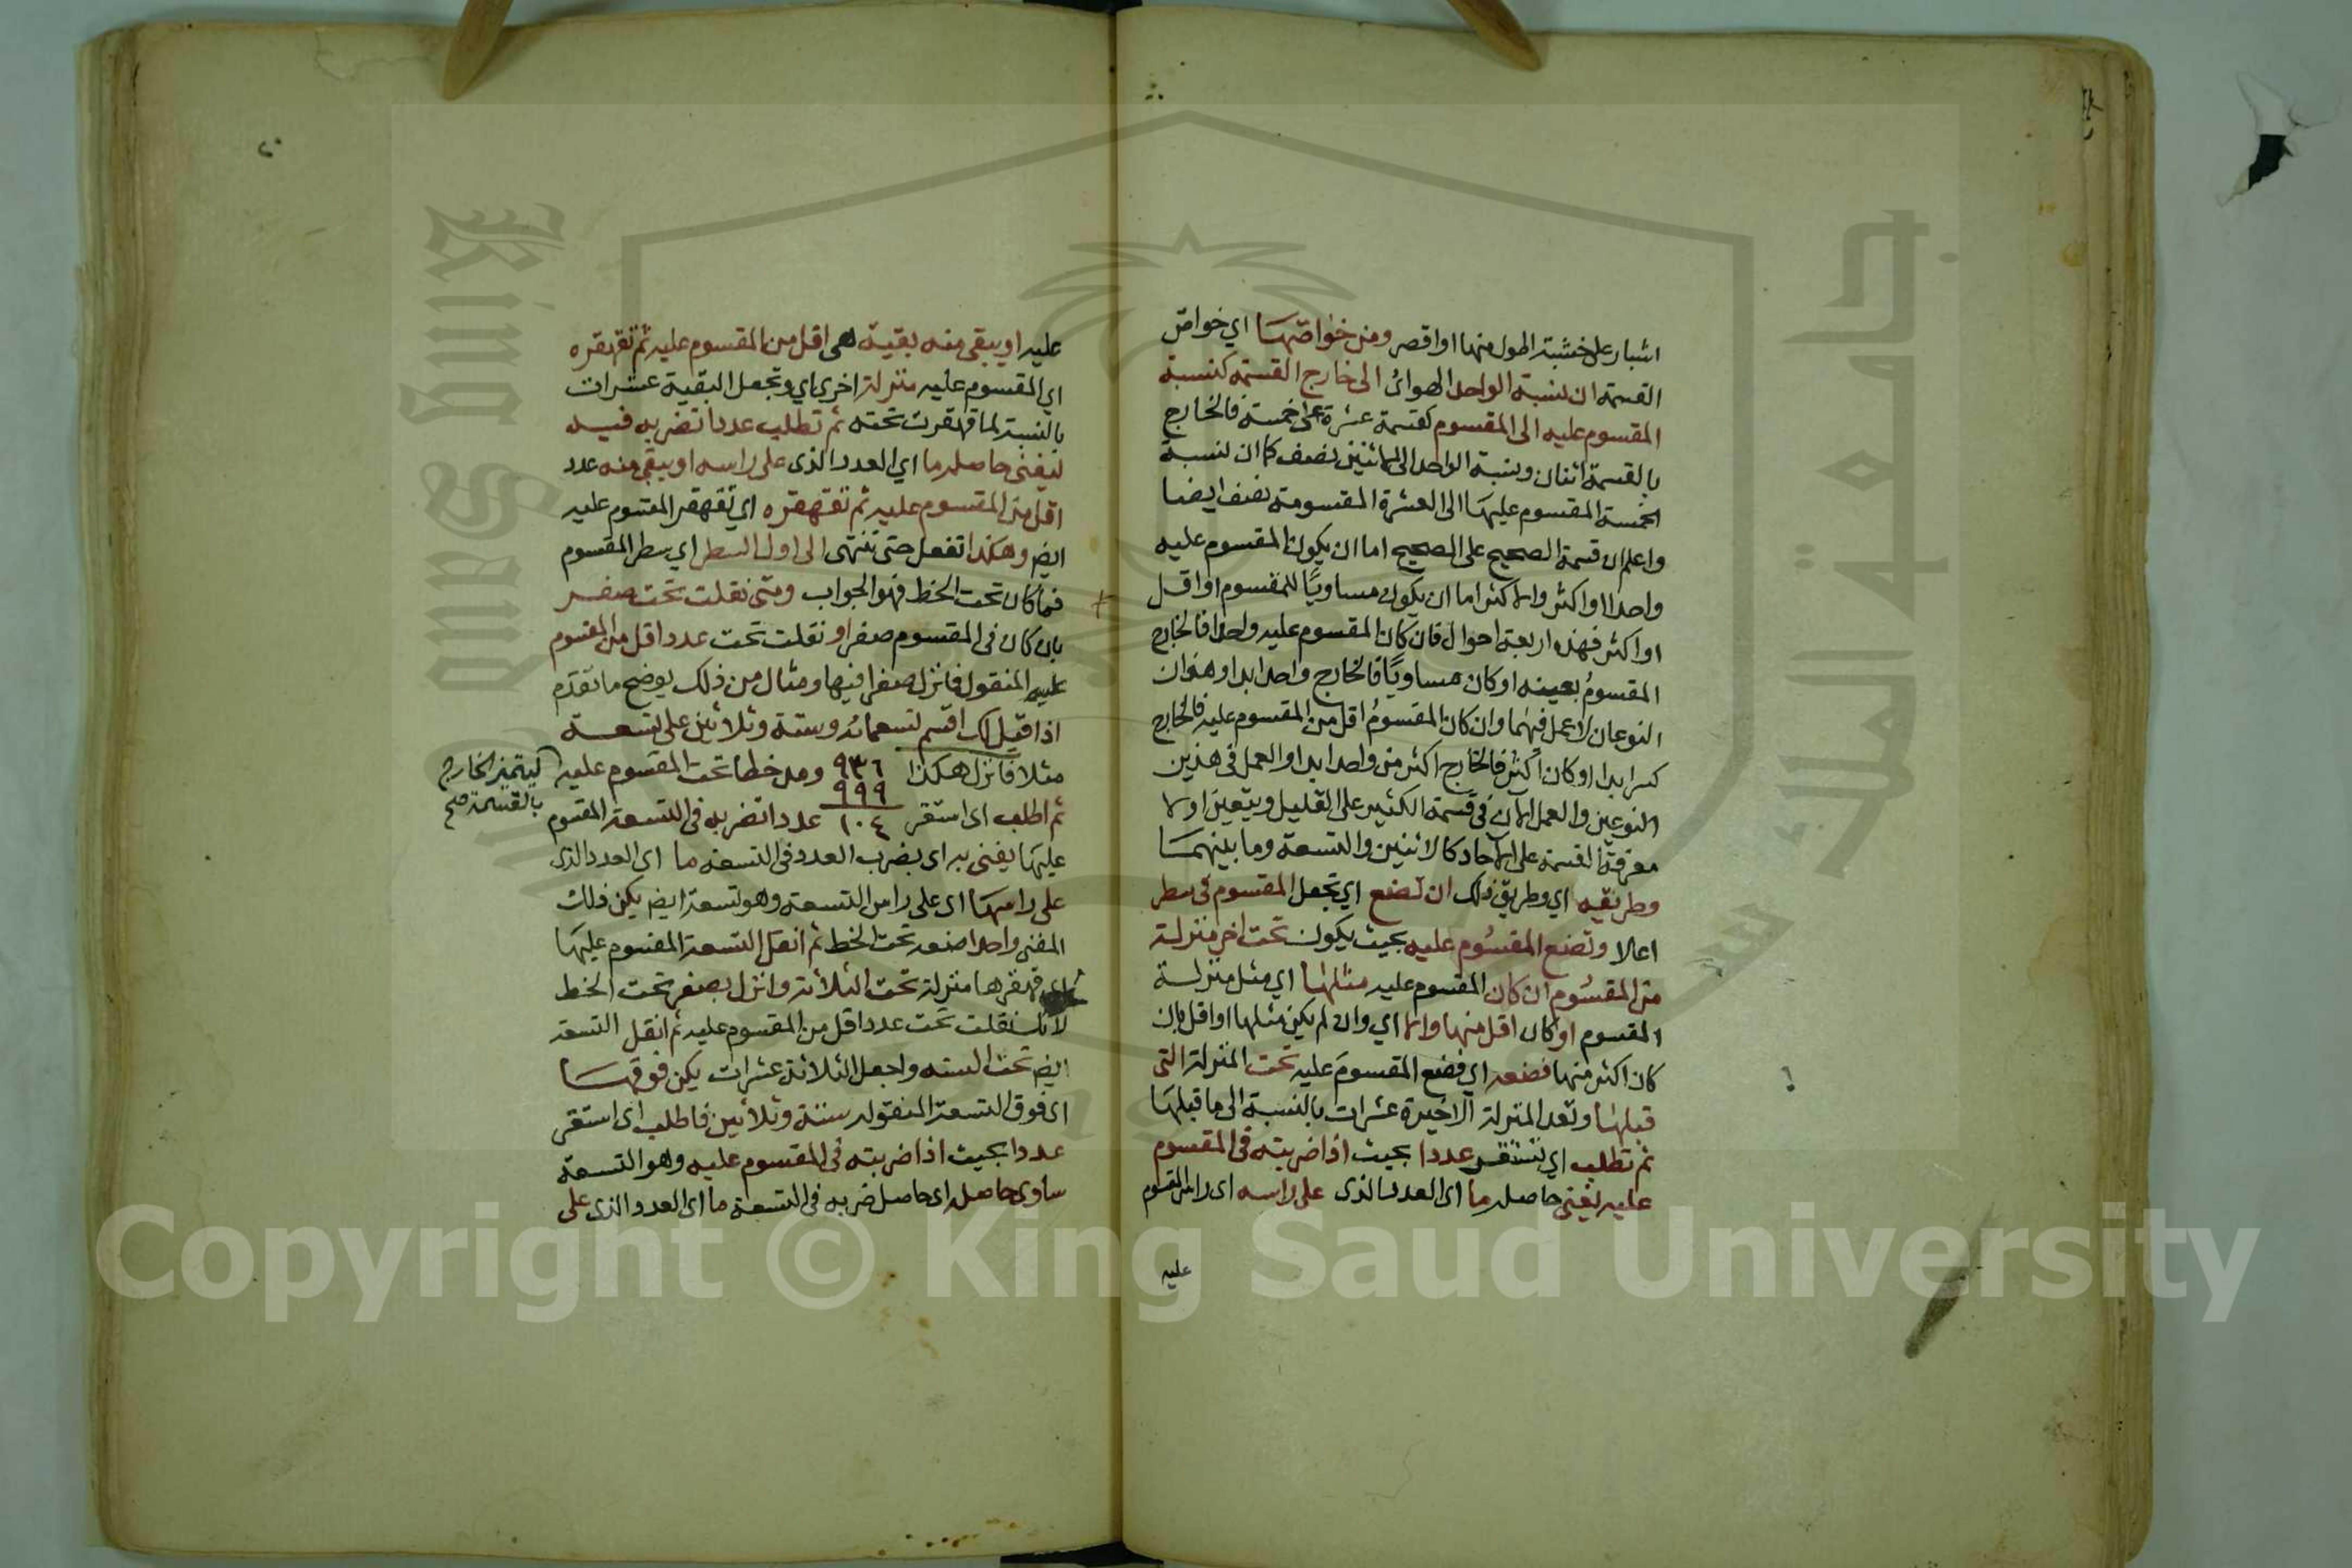 اشبار على خشبة اطول منها او اقصر ومن خواصّها اي خواصّ
القسمة ان نسبة الواحد الهوائى الى خارج القسمة كنسبة
المقسوم عليه الى المقسوم كقسمة عشرة على خمسة فالخارج
بالقسمة اثنان ونسبة الواحد الى الاثنين نصف كما ان نسبة
الخمسة المقسوم عليها الى العشرة المقسومة نصف ايضا
واعلم ان قسمة الصحيح على الصحيح اما ان يكون المقسوم عليه
واحدا او اكثر والاكثر اما ان يكون مساويًا للمقسوم او اقل
او اكثر فهذه اربعة احوال فان كان المقسوم عليه واحدا فالخارج
المقسومُ بعينه او كان مساويًا فالخارج واحد ابدا وهذان
النوعان لا عمل فيهما وان كان المقسومُ اقل من المقسوم عليه فالخارج
كسر ابدا او كان اكثر فالخارج اكثر من واحد ابدا والعمل فى هذين
النوعين والعمل الآن فى قسمة الكثير على القليل ويتعين اولا
معرفة القسمة على الآحاد كالاثنين والتسعة وما بينهما
وطريقه اي وطريق ذلك ان تضع اي تجعل المقسوم فى سطر
اعلا وتضع المقسُوم عليه بحيث يكون تحت اخر منزلة
من المقسُوم ان كان المقسوم عليه مثلها اي مثل منزلة
المقسوم او كان اقل منها والا اي وان لم يكن مثلها او اقل بان
كان اكثر منها فضعه اي فضع المقسومَ عليه تحت المنزلة التى
قبلها وتعد المنزلة الاخيرة عشرات بالنسبة الى ما قبلها
ثم تطلب اي تستقر عددا بحيث اذا ضربته فى المقسوم
عليه يفنى حاصله ما اى العدد الذى على راسه اى راس المقسوم
عليه
عليه او يبقى منه بقية هى اقل من المقسوم عليه ثم تقهقره
اي المقسوم عليه منزلة اخرى اي وتجعل البقية عشرات
بالنسبة لما قهقرت تحته ثم تطلب عددا تضربه فيه
ليفنى حاصله ما اي العدد الذى على راسه او يبقى منه عدد
اقل من المقسوم عليه ثم تقهقره اي تقهقر المقسوم عليه
ايض وهكذا تفعل حتى تنتهى الى اول السطر اي سطر المقسوم
فما كان تحت الخط فهو الجواب ومتى نقلت تحت صفر
بان كان فى المقسوم صفر او نقلت تحت عدد اقل من المقسوم
عليه المنقول فانزل صفرا فيها ومثال من ذلك يوضح ما تقدم
اذا قيل لك اقسم تسعمائه وستة وثلاثين على تسعة
مثلا فانزل هكذا ٩٣٦ ومد خطا تحت المقسوم عليه ليتميز الخارج
٩٩٩ بالقسمة صح
ثم اطلب اى استقر ١٠٤ عددا تضربه فى التسعة المقسوم
عليها يفنى به اى بضرب العدد فى التسعة ما اى العدد الذى
على راسها اى على راس التسعة وهو تسعة ايض يكن ذلك
المفنى واحدا ضعه تحت الخط ثم انقل التسعة المقسوم عليها
اى قهقرها منزلة تحت الثلاثة وانزل بصفر تحت الخط
لانك نقلت تحت عدد اقل من المقسوم عليه ثم انقل التسعة
ايض تحت الستة واجعل الثلاثة عشرات يكن فوقها
اى فوق التسعة المنقوله ستة وثلاثين فاطلب اى استقر
عددا بحيث اذا ضربته فى المقسوم عليه وهو التسعة
ساوى حاصله اى حاصل ضربه فى التسعة ما اى العدد الذى على
Copyright © King Saud University
King Saud University
جامعة الملك سعود